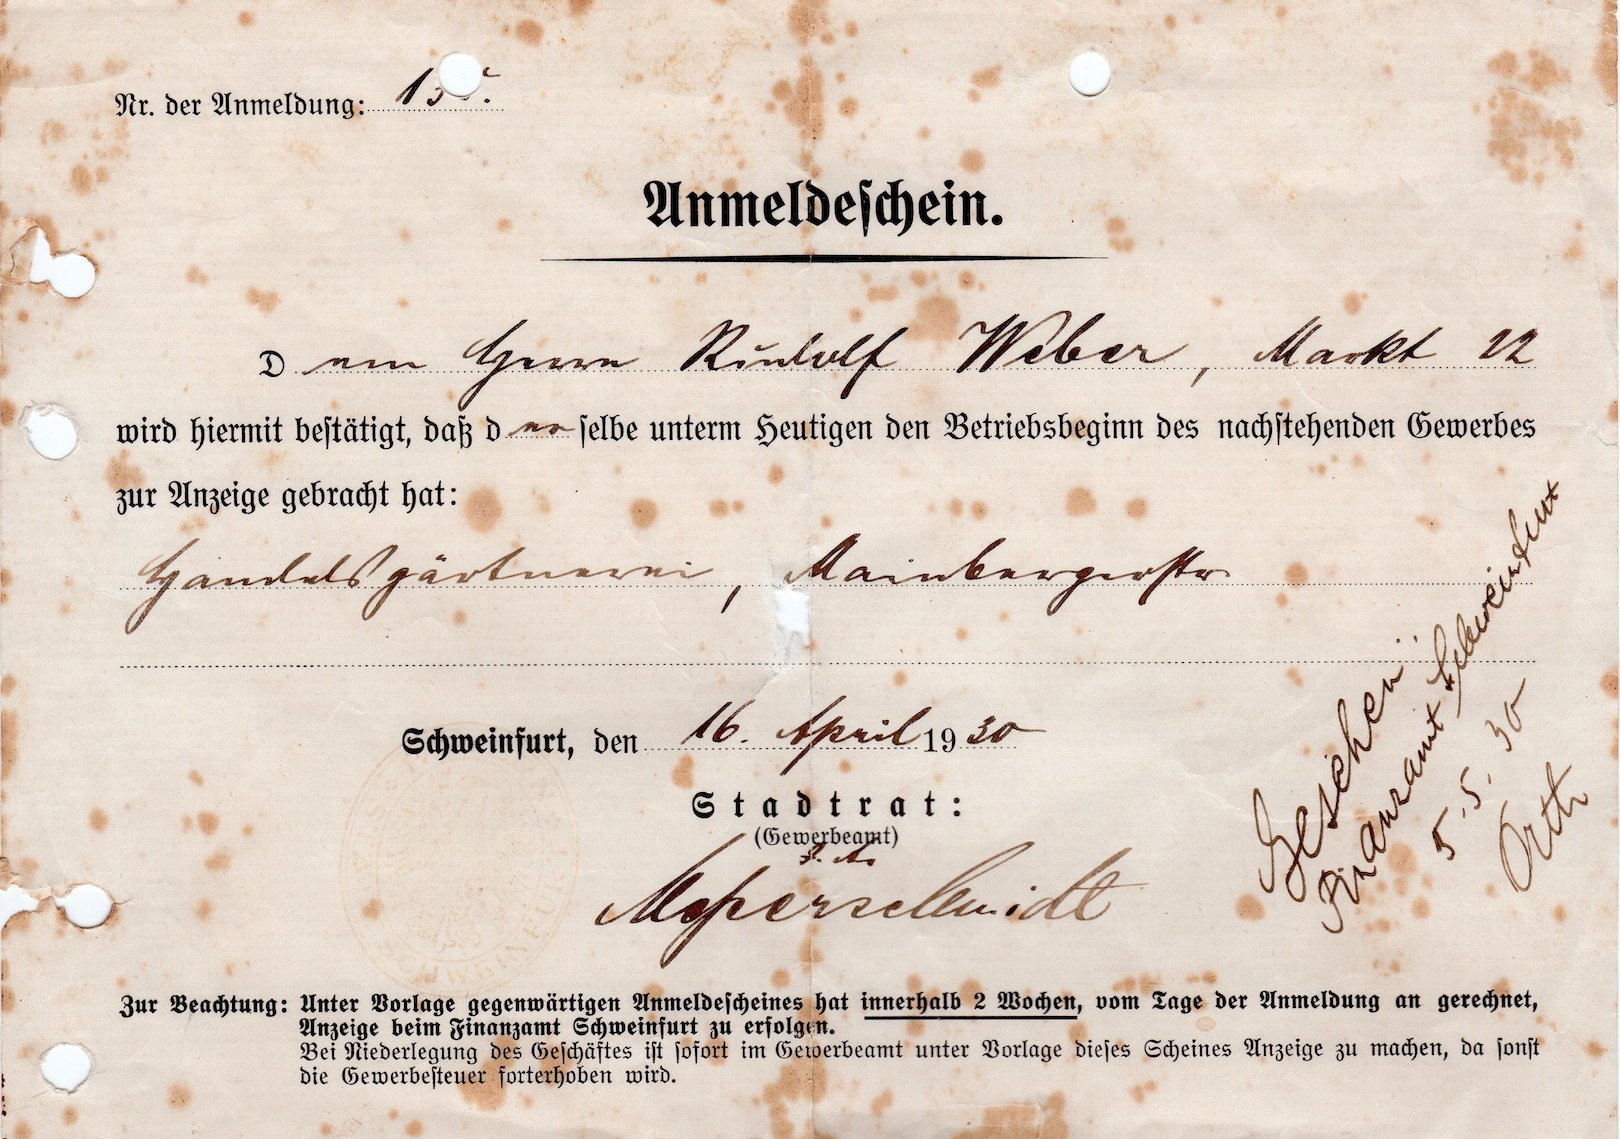 Nr. der Anmeldung:
Anmeldeschein.
Dem Herrn Rudolf Weber, Markt 22
wird hiermit bestätigt, daß derselbe unterm Heutigen den Betriebsbeginn des nachstehenden Gewerbes
zur Anzeige gebracht hat:
Handelsgärtnerei, Mainbergerstr
Schweinfurt, den 16. April 1930
Stadtrat:
(Gewerbeamt)
Gesehen
Finanzamt Schweinfurt
5.5.30
Orth
Zur Beachtung: Unter Vorlage gegenwärtigen Anmeldescheines hat innerhalb 2 Wochen, vom Tage der Anmeldung an gerechnet,
Anzeige beim Finanzamt Schweinfurt zu erfolgen.
Bei Niederlegung des Geschäftes ist sofort im Gewerbeamt unter Vorlage dieses Scheines Anzeige zu machen, da sonst
die Gewerbesteuer forterhoben wird.